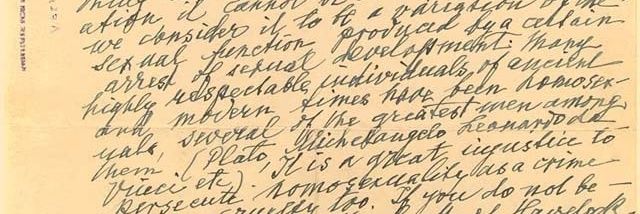 ation it cannot be
we consider it to be a variation of the
sexual function produced by a certain
arrest of sexual development. Many
highly respectable individuals of ancient
and modern times have been homosex-
uals, several of the greatest men among
them (Plato, Michelangelo Leonardo da
Vinci etc). It is a great injustice to
persecute homosexuality as a crime
cruelty too. If you do not be-
Havelock